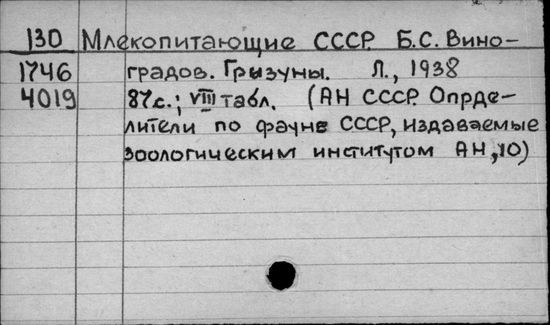 130 Млекопитающие СССР. Б.С. Вино-
1746 градов. Грызуны. Л., 1938
4019 87с.; VIII табл. (АН СССР. Опрде-
лители по фауне СССР, издаваемые
зоологическим институтом АН, 10)